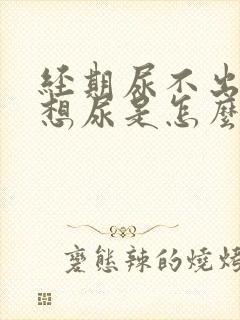 经期尿不出
想尿是怎麼
態辣的燒烤